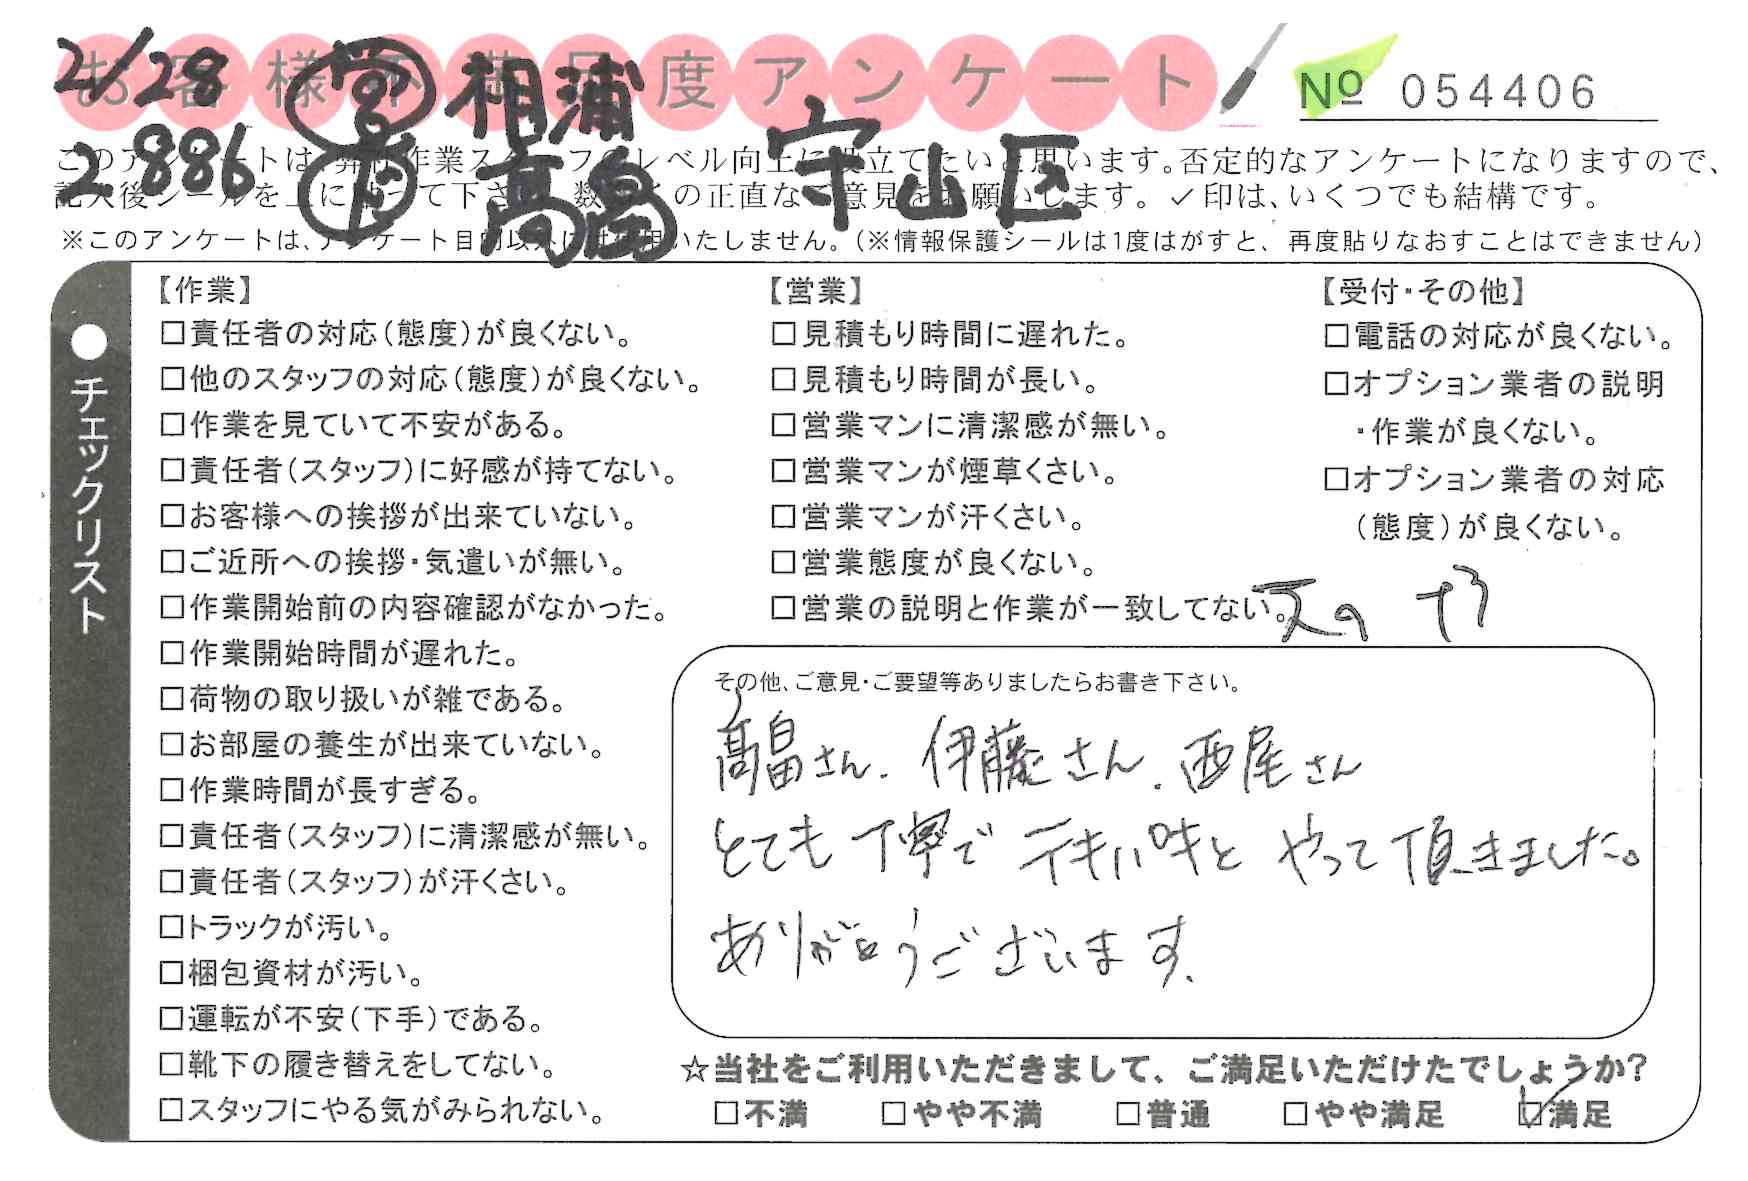 お客様不満足度アンケート
2/28 営 相浦
№ 054406
2886 ド 高畠 守山区
このアンケートは、弊社作業スタッフのレベル向上に役立てたいと思います。否定的なアンケートになりますので、
記入後シールを上に貼って下さい。数多くの正直なご意見をお願いします。✓印は、いくつでも結構です。
※このアンケートは、アンケート目的以外には使用いたしません。(※情報保護シールは1度はがすと、再度貼りなおすことはできません)
●チェックリスト
【作業】
□責任者の対応(態度)が良くない。
□他のスタッフの対応(態度)が良くない。
□作業を見ていて不安がある。
□責任者(スタッフ)に好感が持てない。
□お客様への挨拶が出来ていない。
□ご近所への挨拶・気遣いが無い。
□作業開始前の内容確認がなかった。
□作業開始時間が遅れた。
□荷物の取り扱いが雑である。
□お部屋の養生が出来ていない。
□作業時間が長すぎる。
□責任者(スタッフ)に清潔感が無い。
□責任者(スタッフ)が汗くさい。
□トラックが汚い。
□梱包資材が汚い。
□運転が不安(下手)である。
□靴下の履き替えをしてない。
□スタッフにやる気がみられない。
【営業】
□見積もり時間に遅れた。
□見積もり時間が長い。
□営業マンに清潔感が無い。
□営業マンが煙草くさい。
□営業マンが汗くさい。
□営業態度が良くない。
□営業の説明と作業が一致してない。
【受付・その他】
□電話の対応が良くない。
□オプション業者の説明
・作業が良くない。
□オプション業者の対応
(態度)が良くない。
その他、ご意見・ご要望等ありましたらお書き下さい。
高畠さん. 伊藤さん. 西尾さん
とても丁寧でテキパキとやって頂きました。
ありがとうございます.
☆当社をご利用いただきまして、ご満足いただけたでしょうか?
□不満 □やや不満 □普通 □やや満足 ☑満足